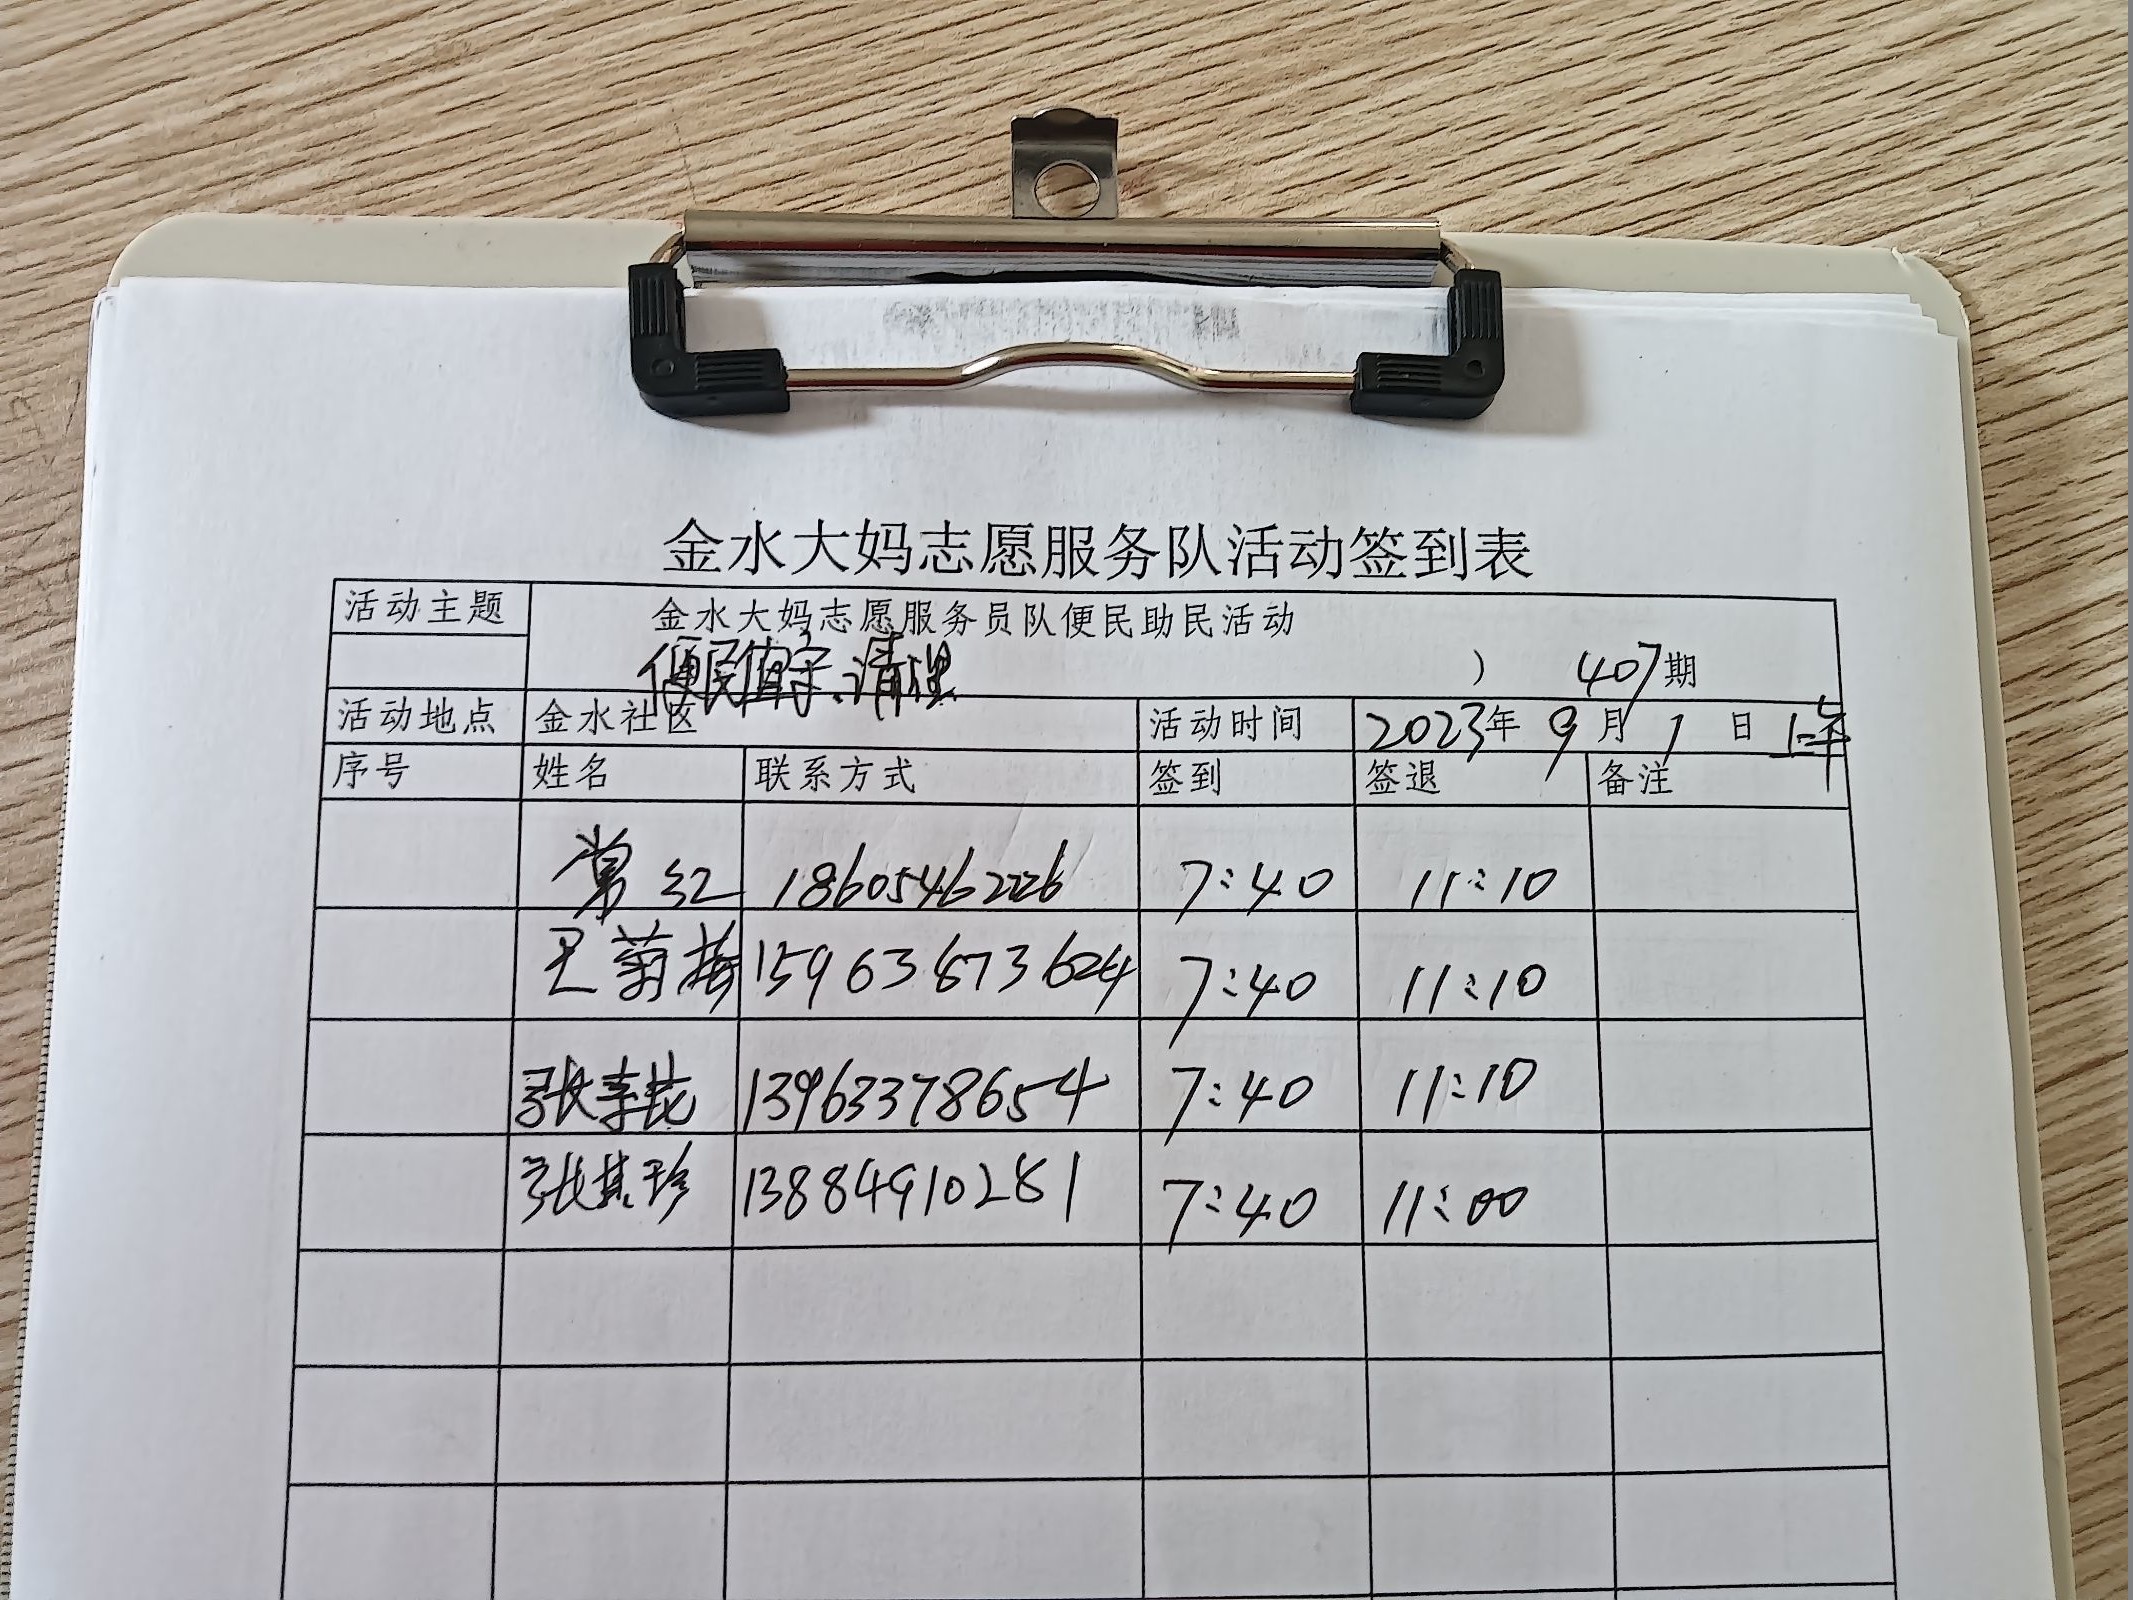 金水大妈志愿服务队活动签到表
活动主题 金水大妈志愿服务员队便民助民活动
便民值守、清理 ） 407期
活动地点 金水社区 活动时间 2023年9月1日 上午
序号 姓名 联系方式 签到 签退 备注
常红 18605462226 7:40 11:10
王菊梅 15963873624 7:40 11:10
张 13963378654 7:40 11:10
张其珍 13884910281 7:40 11:00